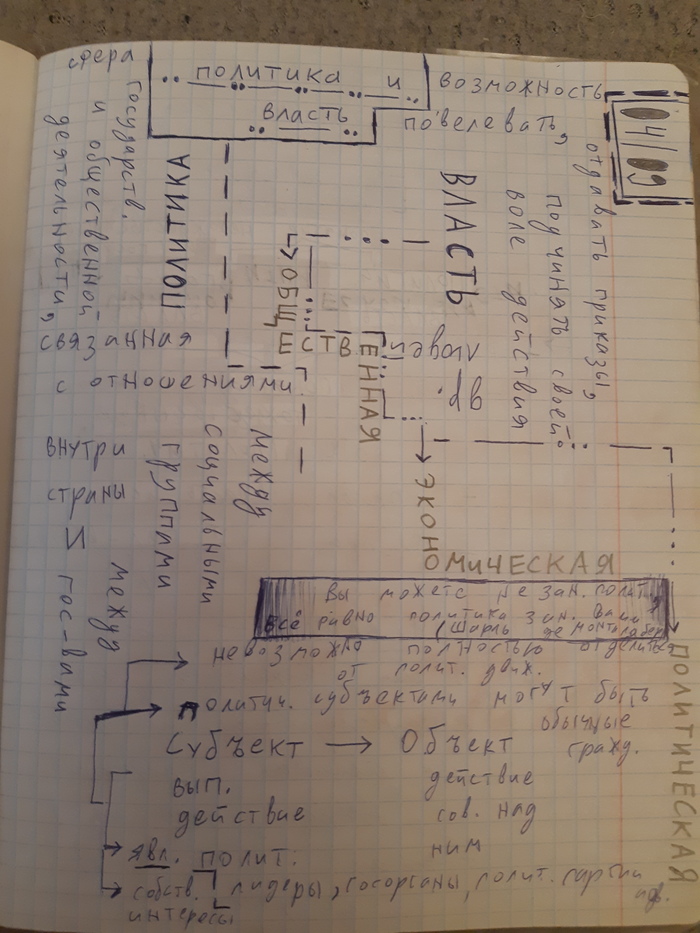 04/09
политика и
власть
ПОЛИТИКА
сфера
государств.
и общественной
деятельности,
связанная
с отношениями
между
социальными
группами
внутри
страны
и
между
гос-вами
ВЛАСТЬ
возможность
повелевать,
отдавать приказы,
подчинять своей
воле действия
др.
людей
ОБЩЕСТВЕННАЯ
ЭКОНОМИЧЕСКАЯ
ПОЛИТИЧЕСКАЯ
Вы можете не зан. полит.,
всё равно политика зан. Вами
(Шарль де Монталамбер)
невозможно полностью отделиться
от полит. движ.
политич. субъектами могут быть
обычные
гражд.
Субъект → Объект
вып.
действие
действие
сов. над
ним
явл. полит.
лидеры, госорганы, полит. партии
собств.
интересы